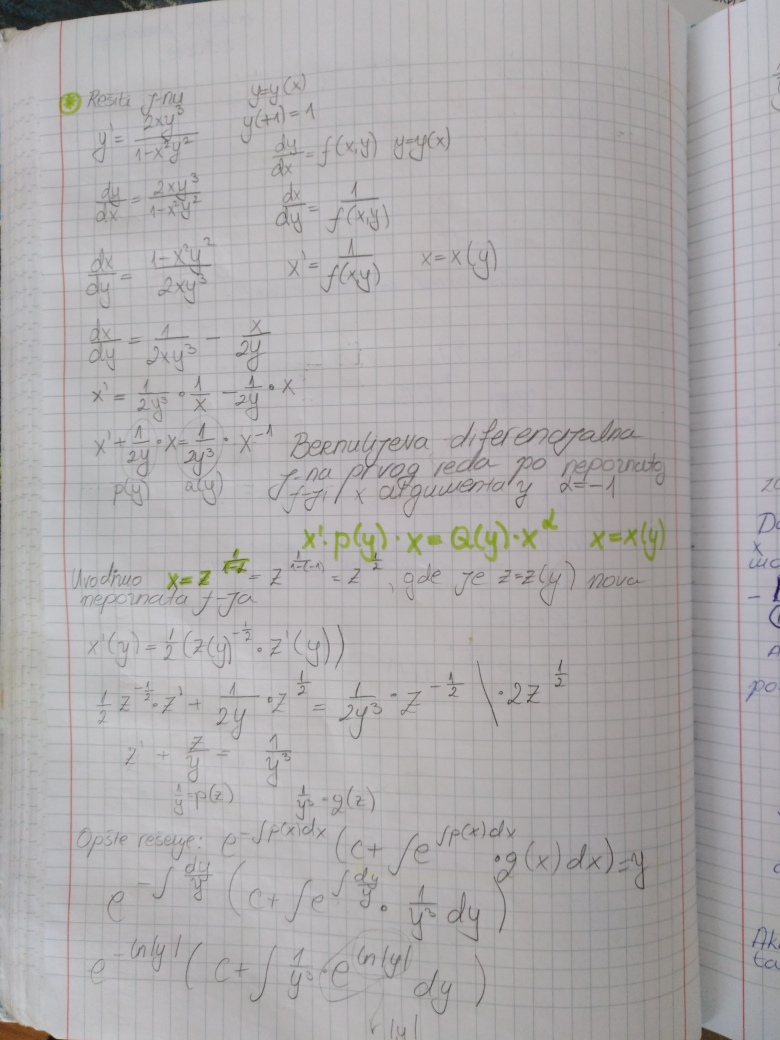 * Rešiti j-nu y=y(x)
y' = 2xy³/1-x²y² y(+1)=1
dy/dx = f(x,y) y=y(x)
dy/dx = 2xy³/1-x²y² dx/dy = 1/f(x,y)
dx/dy = 1-x²y²/2xy³ x' = 1/f(xy) x=x(y)
dx/dy = 1/2xy³ - x/2y
x' = 1/2y³ · 1/x - 1/2y · x
x' + 1/2y · x = 1/2y³ · x⁻¹ Bernulijeva diferencijalna
j-na prvog reda po nepoznatoj
p(y) a(y) f-ji x argumenta y α=-1
x' · p(y) · x = Q(y) · x^α x=x(y)
Uvodimo x = z^(1/1-α) = z^(1/1-(-1)) = z^(1/2), gde je z=z(y) nova
nepoznata f-ja
x'(y) = 1/2 (z(y)^(-1/2) · z'(y))
1/2 z^(-1/2) · z' + 1/2y · z^(1/2) = 1/2y³ · z^(-1/2) \ · 2z^(1/2)
z' + z/y = 1/y³
1/y = p(z) 1/y³ = g(z)
Opšte rešenje: e^(-∫p(x)dx) (c + ∫e^(∫p(x)dx) · g(x)dx) = y
e^(-∫dy/y) (c + ∫e^(∫dy/y) · 1/y³ dy)
e^(-ln|y|) (c + ∫ 1/y³ · e^(ln|y|) dy)
|y|